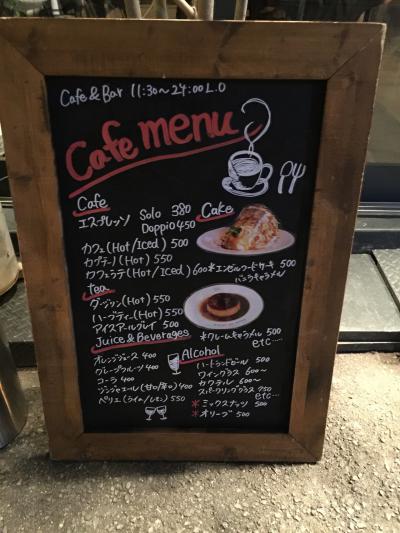 Cafe & Bar 11:30〜24:00 L.O
Cafe menu
Cafe
エスプレッソ Solo 380
Doppio 450
カフェ(Hot/Iced) 500
カプチーノ(Hot) 550
カフェラテ(Hot/Iced) 600
tea
ダージリン(Hot) 550
ハーブティー(Hot) 550
アイスアールグレイ 500
Juice & Beverages
オレンジジュース 400
グレープフルーツ 400
コーラ 400
ジンジャエール(甘口/辛口) 400
ペリエ(ライム/レモン) 550
Cake
*エンゼルフードケーキ 500
バニラキャラメル
*クレームキャラメル 500
etc....
Alcohol
ハートランドビール 500
ワイングラス 600〜
カクテル 600〜
スパークリンググラス 750
etc...
*ミックスナッツ 500
*オリーブ 500